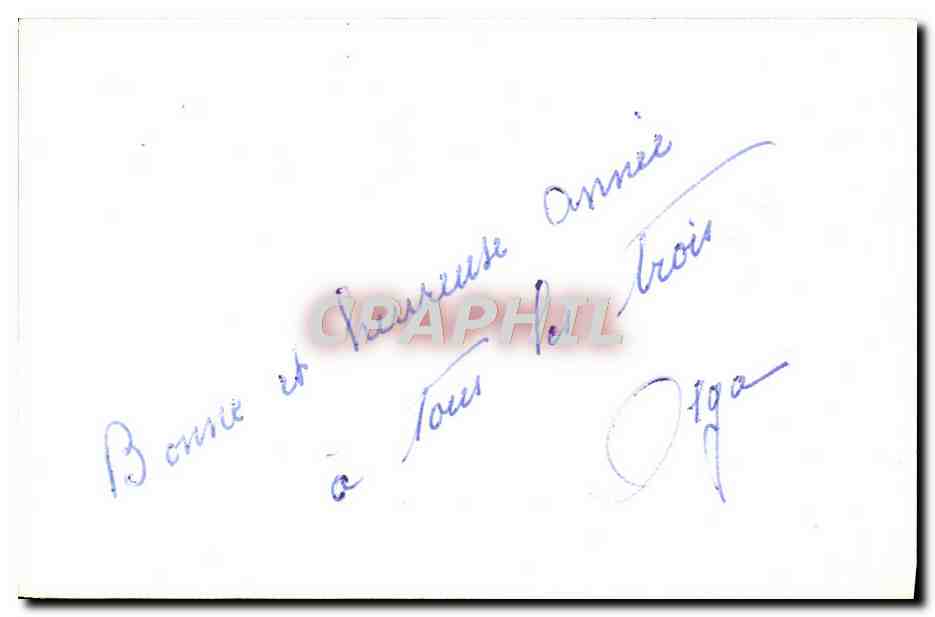 Bonne et heureuse année
à tous les trois
Olga
CPAPHIL